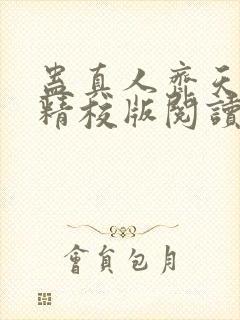 蛊真人齊天
精校版閱讀
會員包月